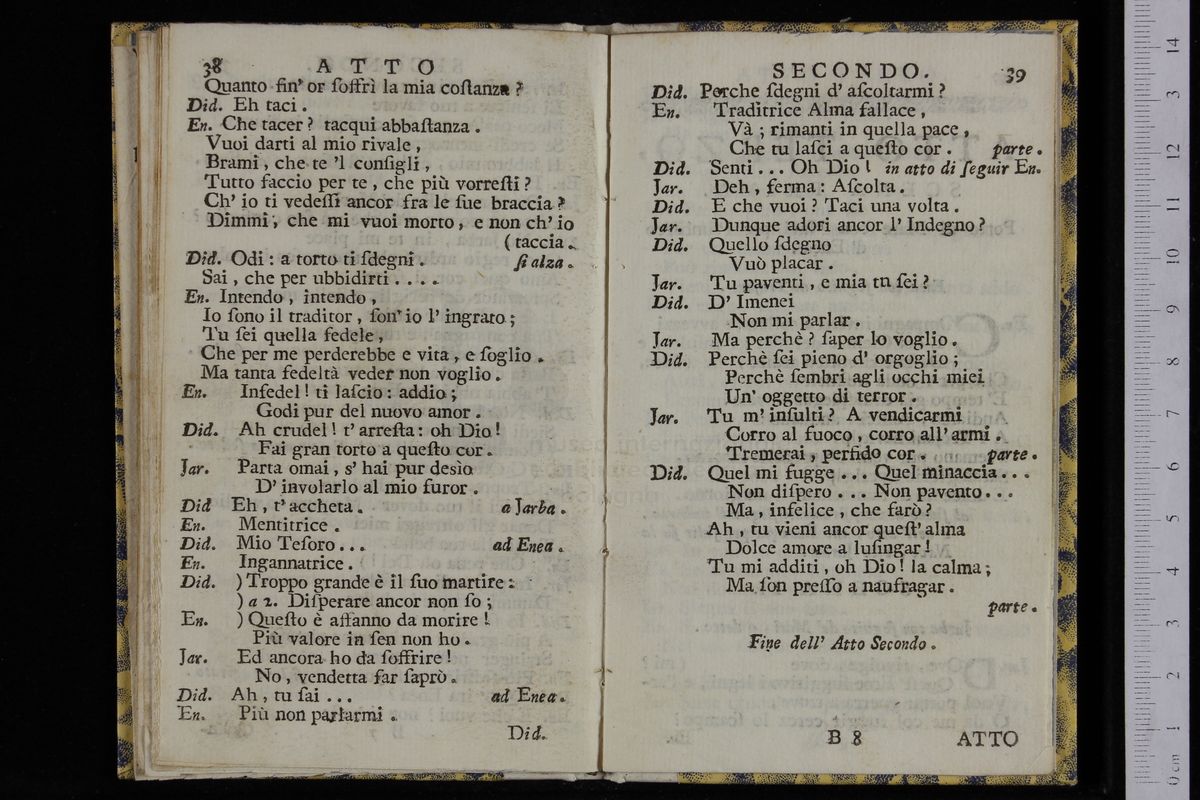 38 A T T O
Quanto fin' or ſoffrì la mia coſtanza ?
Did. Eh taci .
En. Che tacer ? tacqui abbaſtanza .
Vuoi darti al mio rivale ,
Brami , che te 'l conſigli ,
Tutto faccio per te , che più vorreſti ?
Ch' io ti vedeſſi ancor fra le ſue braccia ?
Dimmi , che mi vuoi morto , e non ch' io
( taccia .
Did. Odi : a torto ti ſdegni . ſi alza .
Sai , che per ubbidirti . . . .
En. Intendo , intendo ,
Io ſono il traditor , ſon' io l' ingrato ;
Tu ſei quella fedele ,
Che per me perderebbe e vita , e ſoglio .
Ma tanta fedeltà veder non voglio .
En. Infedel ! ti laſcio : addio ;
Godi pur del nuovo amor .
Did. Ah crudel ! t' arreſta : oh Dio !
Fai gran torto a queſto cor .
Jar. Parta omai , s' hai pur desìo
D' involarlo al mio furor .
Did Eh , t' accheta . a Jarba .
En. Mentitrice .
Did. Mio Teſoro . . . ad Enea .
En. Ingannatrice .
Did. ) Troppo grande è il ſuo martire :
) a 2. Diſperare ancor non ſo ;
En. ) Queſto è affanno da morire !
Più valore in ſen non ho .
Jar. Ed ancora ho da ſoffrire !
No , vendetta far ſaprò .
Did. Ah , tu ſai . . . ad Enea .
En. Più non parlarmi .
Did.
SECONDO. 39
Did. Perche ſdegni d' aſcoltarmi ?
En. Traditrice Alma fallace ,
Và ; rimanti in quella pace ,
Che tu laſci a queſto cor . parte .
Did. Senti . . . Oh Dio ! in atto di ſeguir En.
Jar. Deh , ferma : Aſcolta .
Did. E che vuoi ? Taci una volta .
Jar. Dunque adori ancor l' Indegno ?
Did. Quello ſdegno
Vuò placar .
Jar. Tu paventi , e mia tu ſei ?
Did. D' Imenei
Non mi parlar .
Jar. Ma perchè ? ſaper lo voglio .
Did. Perchè ſei pieno d' orgoglio ;
Perchè ſembri agli occhi miei
Un' oggetto di terror .
Jar. Tu m' inſulti ? A vendicarmi
Corro al fuoco , corro all' armi .
Tremerai , perfido cor . parte .
Did. Quel mi fugge . . . Quel minaccia . . .
Non diſpero . . . Non pavento . . .
Ma , infelice , che farò ?
Ah , tu vieni ancor queſt' alma
Dolce amore a luſingar !
Tu mi additi , oh Dio ! la calma ;
Ma ſon preſſo a naufragar .
parte .
Fine dell' Atto Secondo .
B 8 ATTO